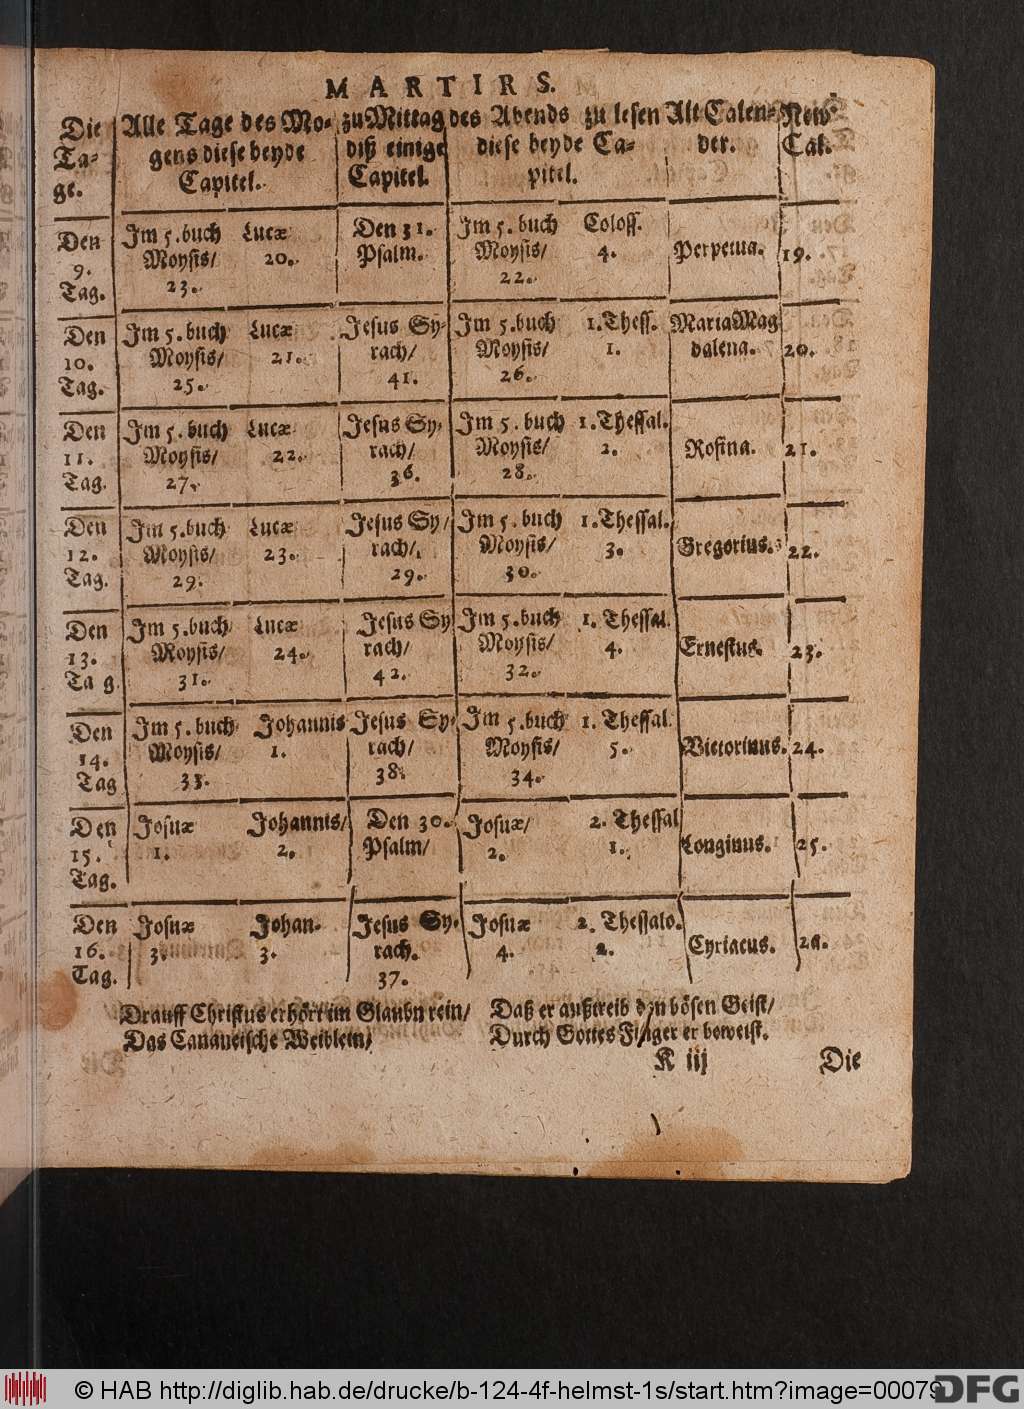 MARTIRS.
Die Alle Tage des Mo- zu Mittag des Abends zu lesen Alt Calen- New
Ta- gens diese beyde diß einige diese beyde Ca- der. Cal.
ge. Capitel. Capitel. pitel.
Den Im 5. buch Lucæ Den 31. Im 5. buch Coloss.
9. Moysis/ 20. Psalm. Moysis/ 4. Perpetua. 19.
Tag. 23. 22.
Den Im 5. buch Lucæ Jesus Sy- Im 5. buch 1. Thess. Maria Mag
10. Moysis/ 21. rach/ Moysis/ 1. dalena. 20.
Tag. 25. 41. 26.
Den Im 5. buch Lucæ Jesus Sy- Im 5. buch 1. Thessal.
11. Moysis/ 22. rach/ Moysis/ 2. Rosina. 21.
Tag. 27. 36. 28.
Den Im 5. buch Lucæ Jesus Sy/ Im 5. buch 1. Thessal.
12. Moysis/ 23. rach/ Moysis/ 3. Gregorius. 22.
Tag. 29. 29. 30.
Den Im 5. buch Lucæ Jesus Sy Im 5. buch 1. Thessal.
13. Moysis/ 24. rach/ Moysis/ 4. Ernestus. 23.
Ta g 31. 42. 32.
Den Im 5. buch Johannis Jesus Sy- Im 5. buch 1. Thessal.
14. Moysis/ 1. rach/ Moysis/ 5. Victorinus. 24.
Tag 33. 38. 34.
Den Josuæ Johannis/ Den 30. Josuæ/ 2. Thessal
15. 1. 2. Psalm/ 2. 1. Longinus. 25.
Tag.
Den Josuæ Johan. Jesus Sy- Josuæ 2. Thessalo.
16. 3. 3. rach. 4. 2. Cyriacus.
Tag. 37.
Drauff Christus erhört im Glaubn rein/ Daß er außtreib den bösen Geist/
Das Cananeische Weiblein/ Durch Gottes Finger er beweist.
K iij Die
© HAB http://diglib.hab.de/drucke/b-124-4f-helmst-1s/start.htm?image=00079
DFG